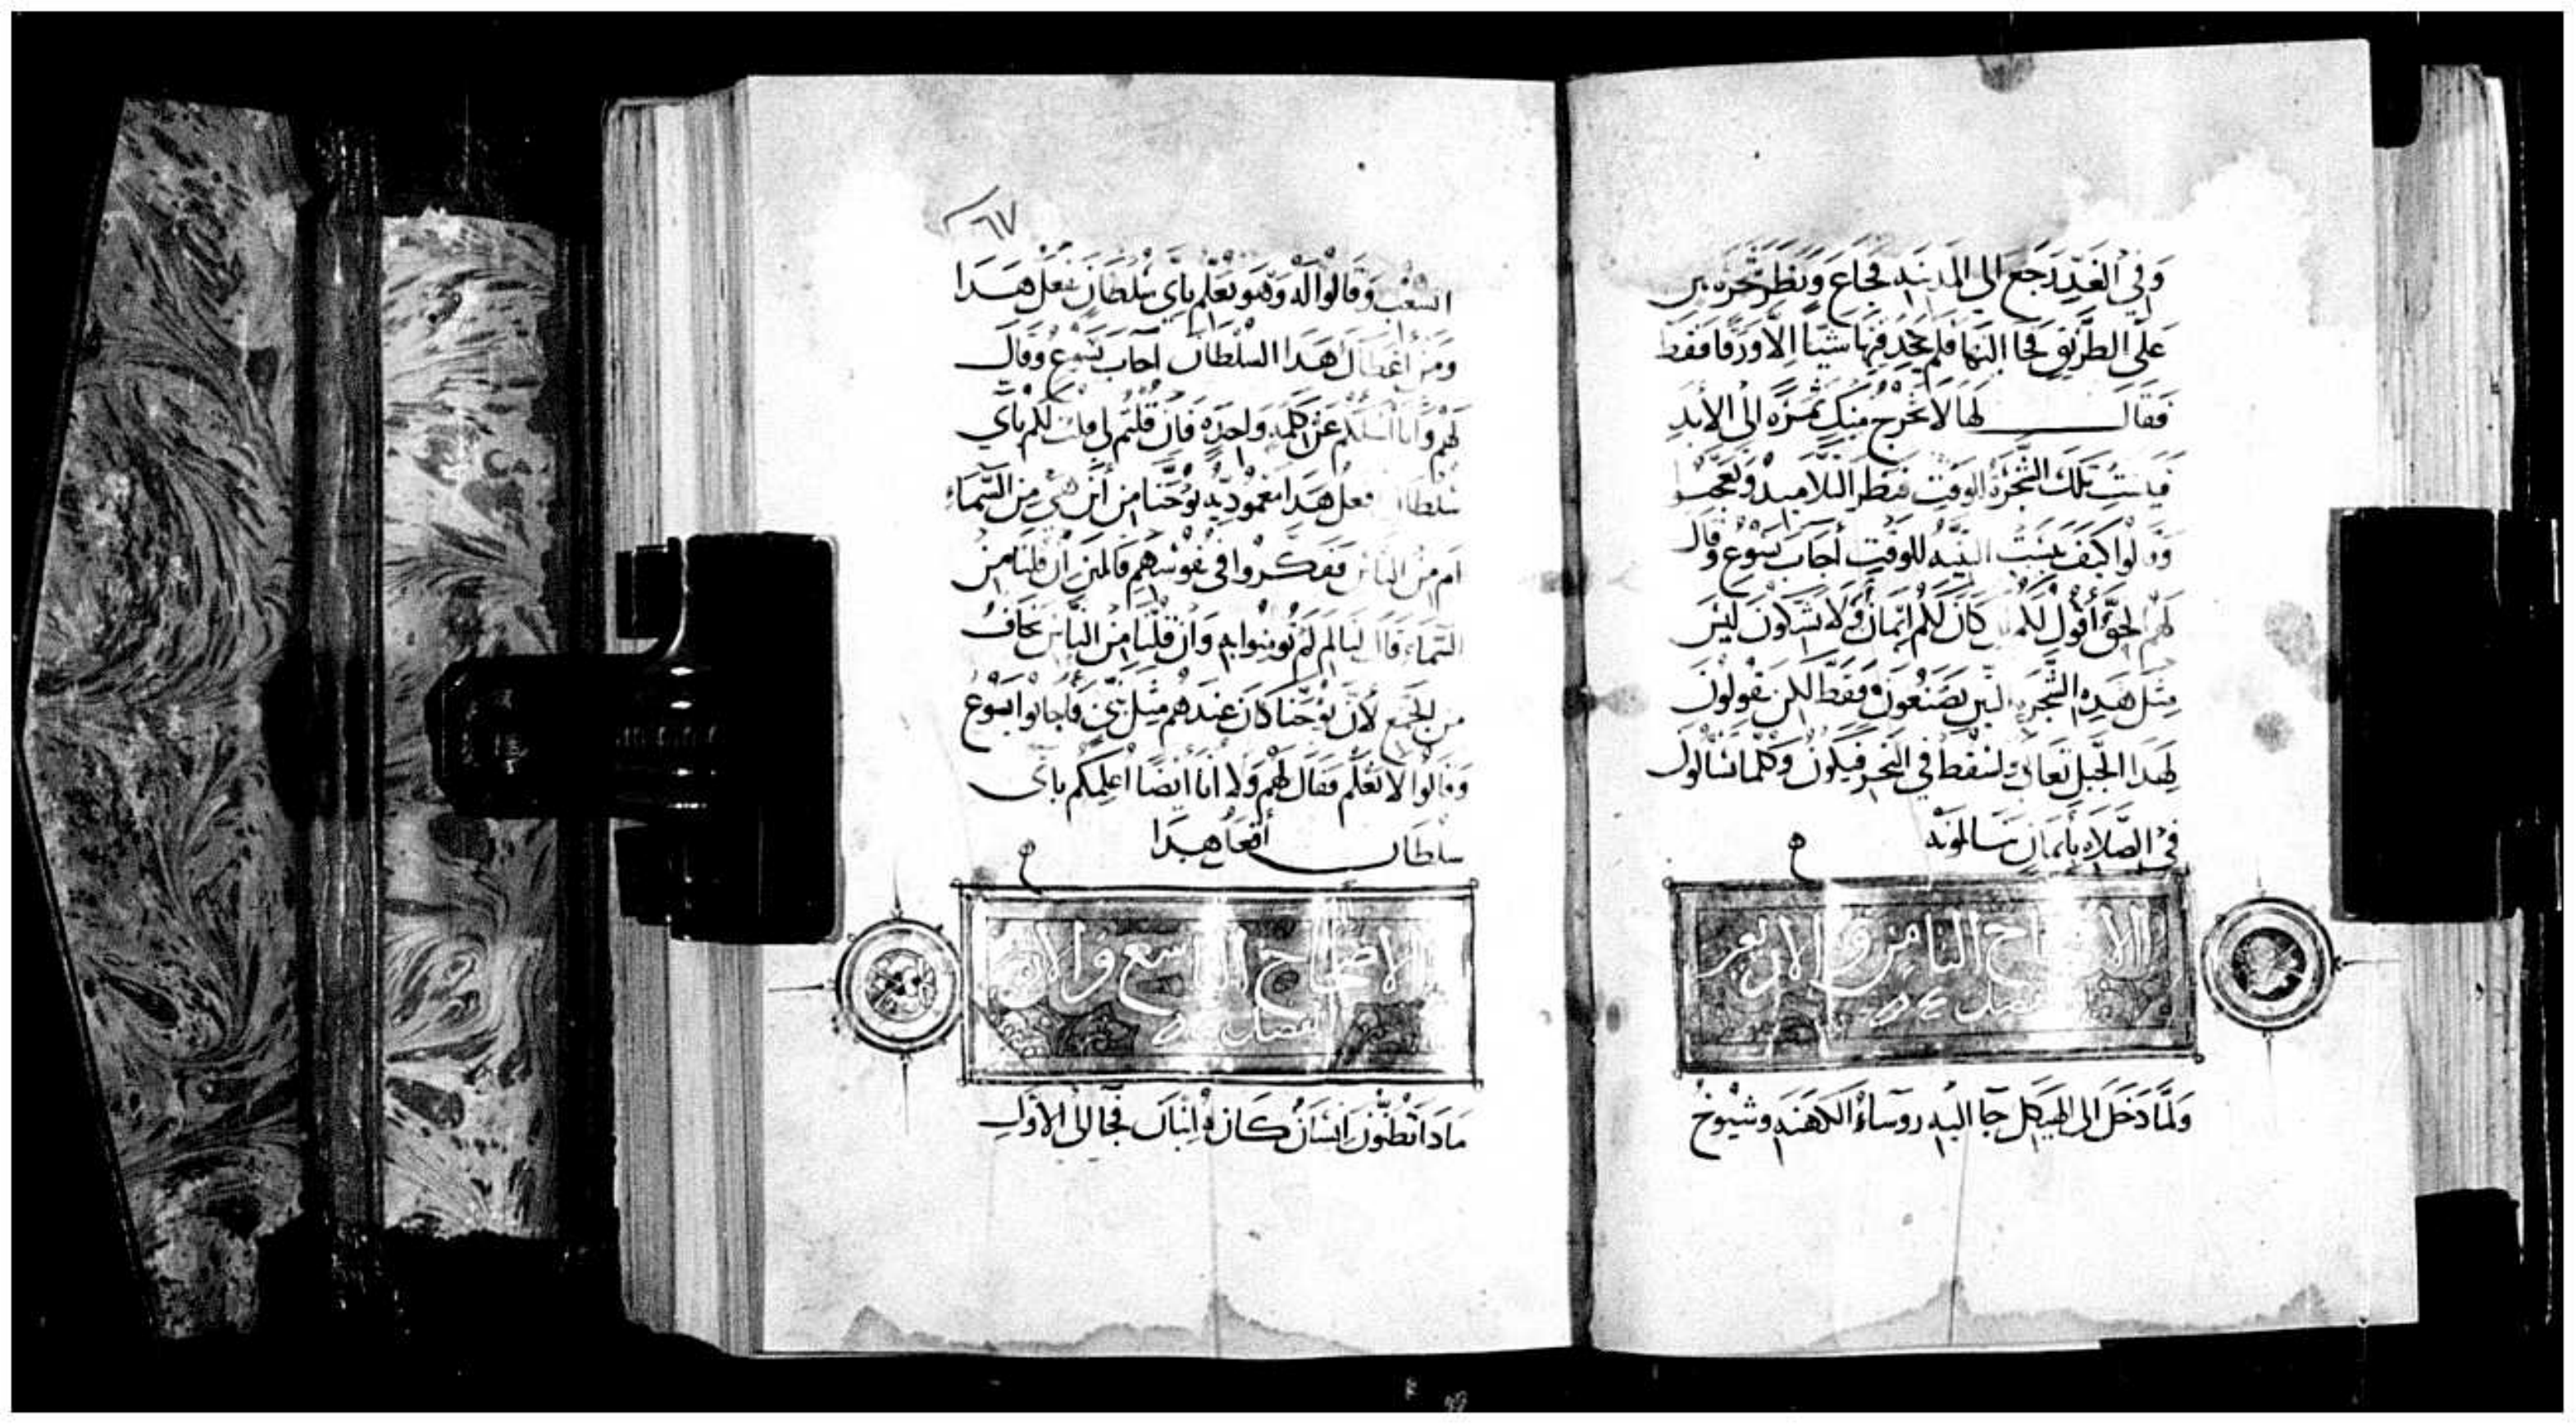 وَفِي الغَدِ رَجَع الي المدينه فجَاعَ وَنظر شجره تين
عَلَى الطَّرِيق فجَا اليهَا فلم يجد فيهَا شيَّا الاَّ ورَقا فقط
فقال لهَا لا تخرج منكِ ثمَره الى الأبدِ
فيبست تلك الشجرة للوقت فنظر التلاميذ وتعجبوا
وقالوا كيف يبست التينه للوقت أجاب يسُوع وقال
لهم الحق أقول لكم كان لكم ايمان وَلا تشكون ليس
مثل هَذِه الشجره التين تصنعون فقط لكن تقولون
لهذا الجبل تعال ولتسقط في البحر فيكون وكلما تسألون
في الصّلاه بأيمان تنالونه
الاصحاح الثامن والاربعون
الفصل
ولَمَّا دَخَل الى الهيكل جا اليه روسَاءُ الكهَنه وشيُوخ
٦٧
الشعب وقالوا له وهو يعَلم باي سُلطان تفعل هَدَا
ومن أعطاك هَدا السلطان اجاب يسُوع وقال
لهم وانا اسئلكم عن كلمه واحده فان قلتم لي قلت لكم باي
سلطان افعل هَدا معموديه يوحَنا من أين هي من السَّماءِ
ام من الناس ففكروا في نفوسهم قالين ان قلنا من
السَّماءِ قال لنا لم لَمْ تومنوا به وان قلنا من الناس نخاف
من الجمع لأن يوحَّنا كان عندهم مثل نبي فأجابوا يسُوع
وقالوا لا نعلم فقال لهم ولا انا ايضا اعلمكم باي
سلطان أفعل هَدا
الاصحاح التاسع والار
الفصل
مادا تظنون انسان كان له ابنان فجا الى الأول